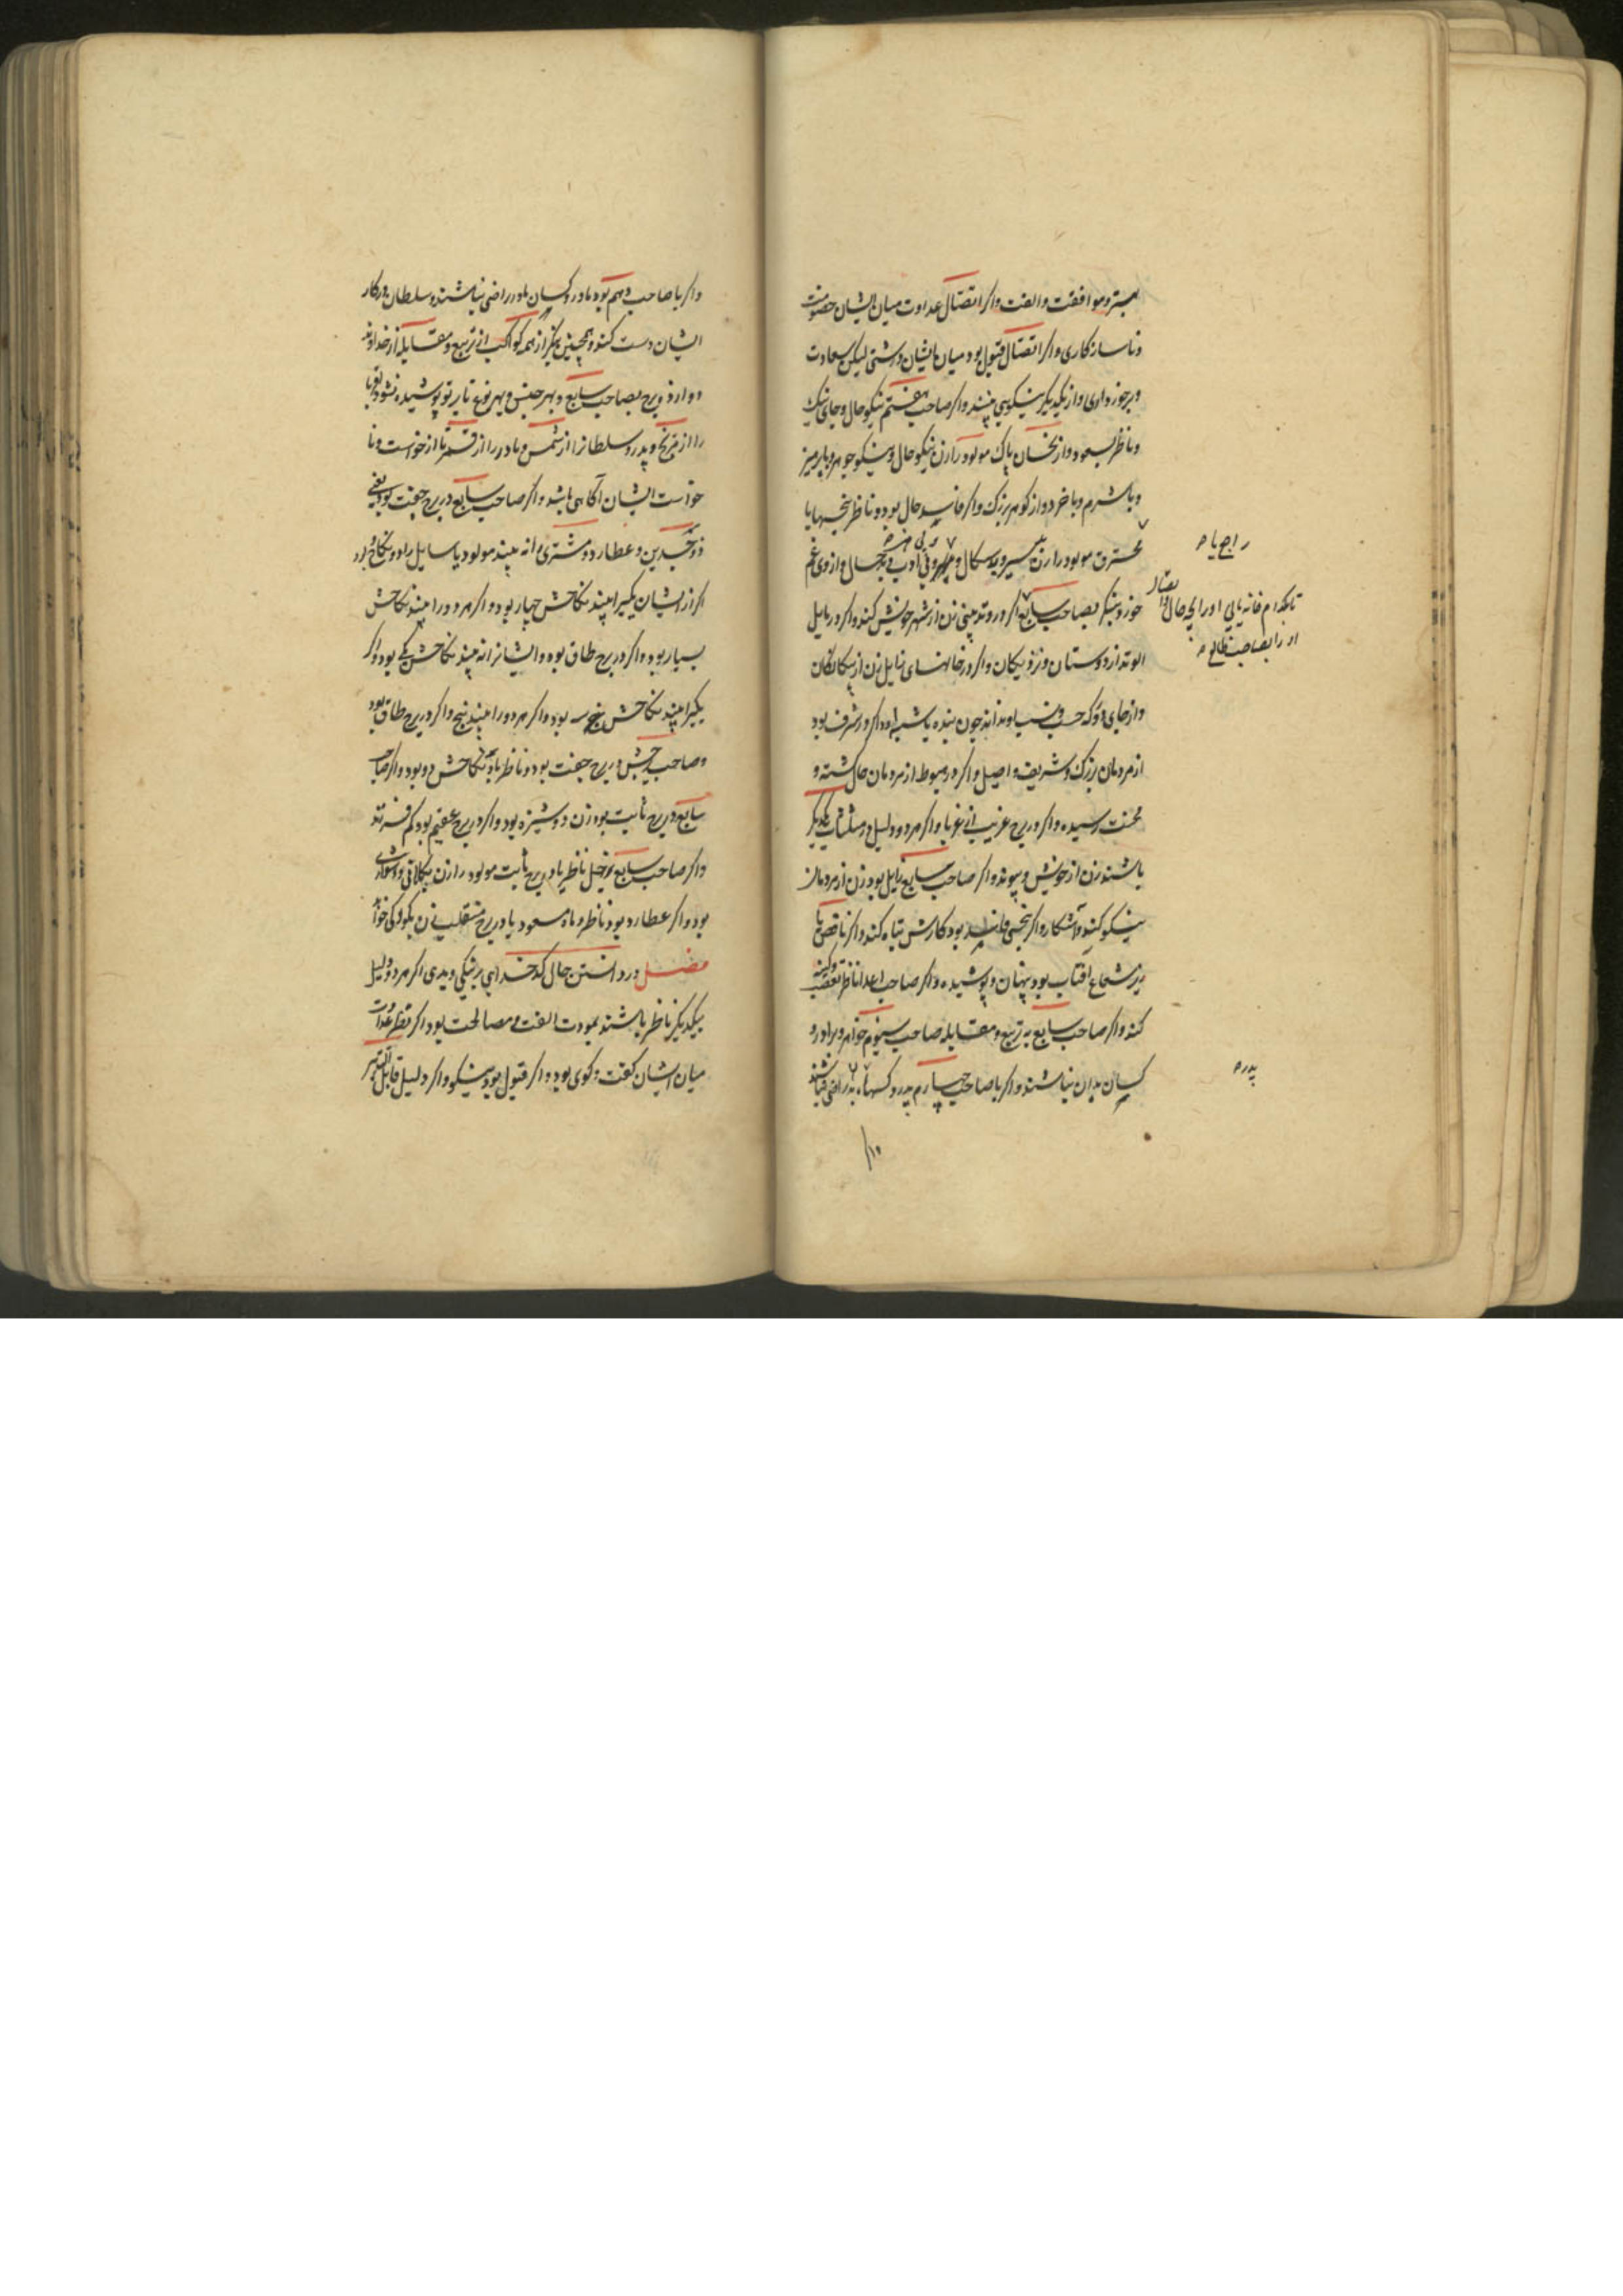 بستر و موافقت و الفت واکر اتصال عداوت میان ایشان خصومت
وناسازکاری واکر اتصال قبول بود میان ایشان درشتی لیکن سعادت
وبرخورداری و از یکدیکر نیکویی بینند واکر صاحب هفتم نیکو حال وجای نیک
وناظر بسعود و از نحسان پاک مولود را زن نیکو حال ونیکو جوهر وپارسا
وباشرم وباخرد و از کوهر بزرک واکر فاسد حال بود و ناظر نحسها یا
محترق مولود را زن بدسیر و بدسکال و بی ادب و بدجمال و از وی غم
خورد وبنکر بصاحب سابع اکر در وتد بینی زن از شهر خویش کند واکر در مایل
الوتد از دوستان و نزدیکان واکر در خانهای زایل زن از بیکانکان
و از جای که حسب و نسب او ندانند چون بنده یا اسیر واکر در شرف بود
از مردمان بزرک و شریف و اصیل واکر در هبوط از مردمان حال کشته و
محنت رسیده واکر در برج غریب از غربا واکر هر دو دلیل در مثلثات یکدیکر
باشند زن از خویش و پیوند واکر صاحب سابع زایل بود زن از مردمان
نیکو کند و آشکارا واکر نحسی فاسد بود کارش تباه کند واکر ناقص یا
زیر شعاع آفتاب بود پنهان و پوشیده واکر صاحب اعدا ناظر تعصب
کند واکر صاحب سابع به تربیع و مقابله صاحب سیوم خواهر و برادر و
کسان بدان نباشند واکر با صاحب چهارم پدر و کسهای پدر راضی نباشند
راجع یا
تا بکدام خانه یابی او را بچه حال و اتصال
او را بصاحب طالع
پدر
واکر با صاحب دهم بود مادر و کسان مادر راضی نباشند و سلطان در کار
ایشان دست کند و همچنین بنکر از همه کواکب از تربیع و مقابله از خداوند
دوازده برج بصاحب سابع و بهر جنس و بهر نوع تا بر تو پوشیده نشود
را از مریخ و پدر و سلطانرا از شمس و مادر را از قمر تا از خواست و نا
خواست ایشان آکاهی باشد واکر صاحب سابع در برج جفت بود یعنی
ذو جسدین و عطارد و مشتری او را نه بیند مولود یا سایل را دو نکاح بود
اکر از ایشان یکیرا بیند نکاحش چهار بود واکر هر دو را بیند نکاحش
بسیار بود واکر در برج طاق بود و ایشانرا نه بیند نکاحش یکی بود واکر
یکیرا بیند نکاحش سه بود واکر هر دو را بیند پنج واکر در برج طاق بود
وصاحب در برج جفت بود و ناظر نکاحش دو بود واکر صاحب
سابع در برج ثابت بود زن دوشیزه بود واکر در برج عقیم بود کم فرزند
واکر صاحب سابع زحل ناظر یا در برج ثابت مولود را زن بکلانی و دشواری
بود واکر عطارد بود ناظر و ماه مسعود یا در برج منقلب زن بکودکی خواهد
فصل در دانستن حال کدخدایی بر نیکی و بدی اکر هر دو دلیل
بیکدیکر ناظر باشند بمودت الفت و مصالحت بود اکر نظر عداوت
میان ایشان کفت و کوی بود واکر قبول بود نیکو واکر دلیل قابل التدبیر